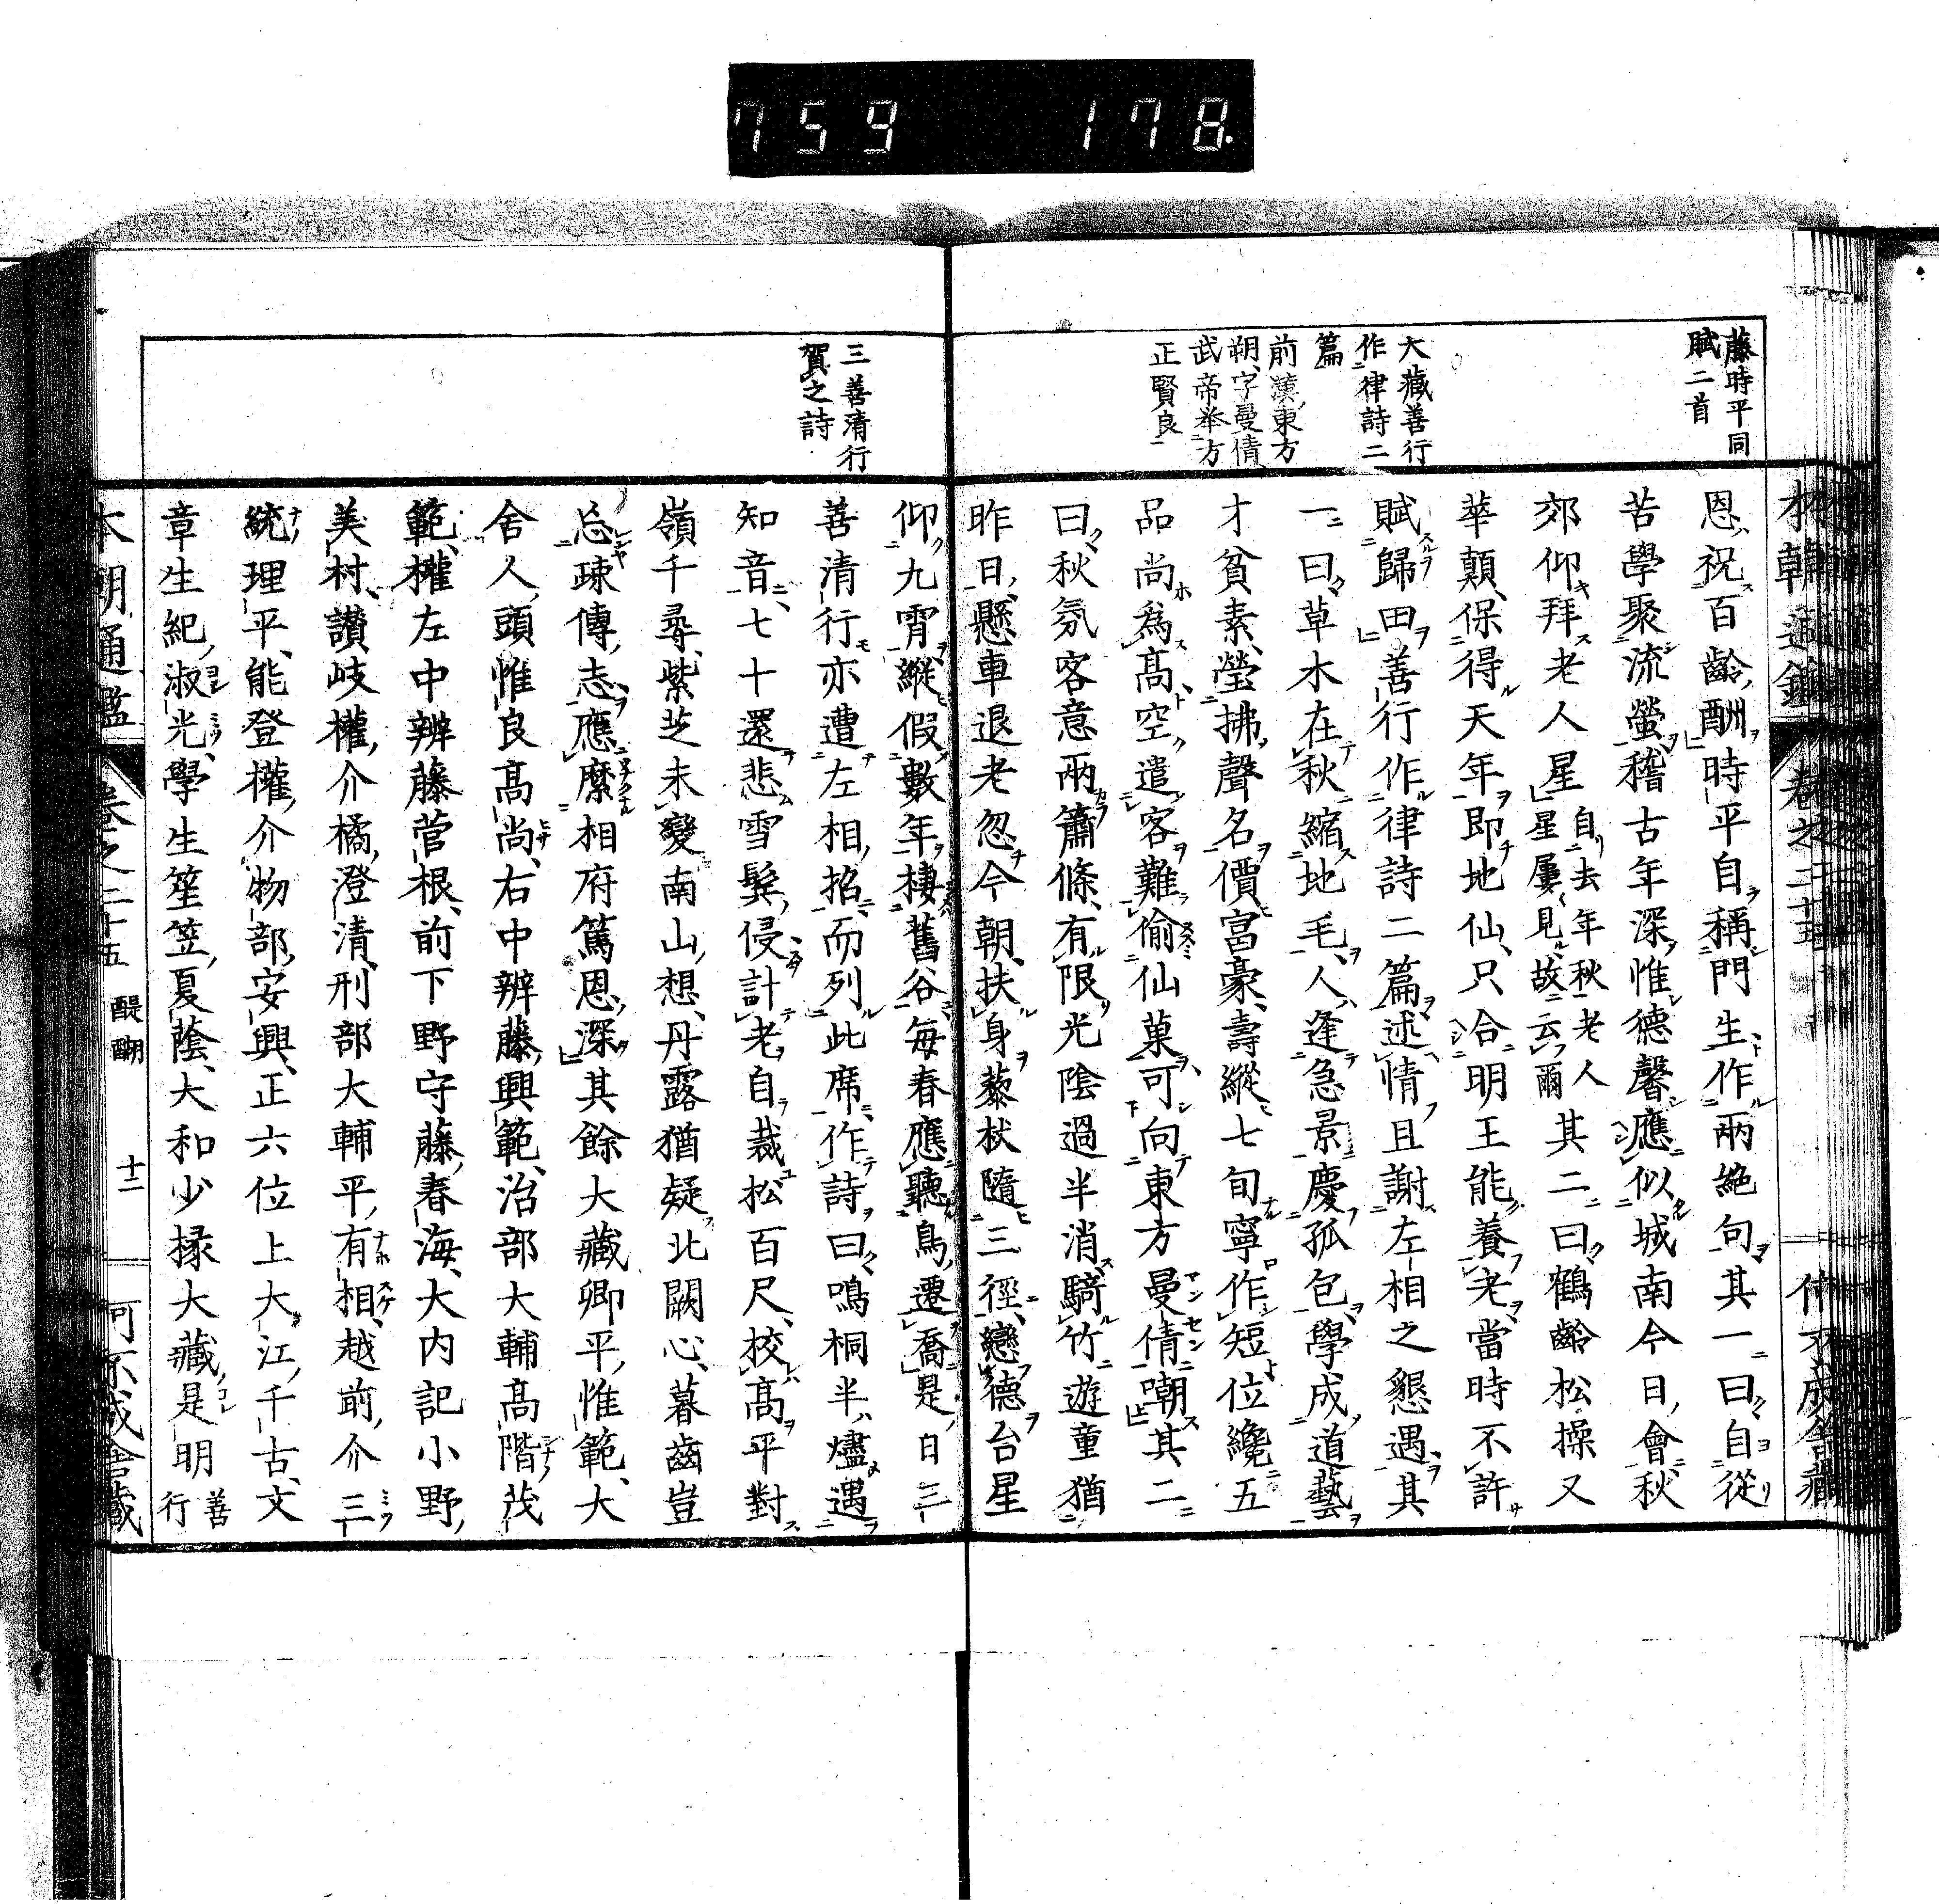 759 178.
藤時平同
賦二首
大藏善行
作律詩二
篇
前漢東方
朔字曼倩
武帝举方
正賢良
恩祝百齡酬時平自稱門生作兩絶句其一曰自從
苦學聚流螢稽古年深惟德馨應似城南今日會秋
郊仰拜老人星自去年秋老人星屢見故云爾其二曰鶴齡松操又
華顛保得天年即地仙只合明王能養老當時不許
賦歸田善行作律詩二篇述情且謝左相之懇遇其
一曰草木在秋縮地毛人逢急景慶孤包學成道藝
才貧素瑩拂聲名價富豪壽縱七旬寧作短位纔五
品尚爲高空遣客難偷仙菓可向東方曼倩嘲其二
曰秋氛客意兩蕭條有限光陰過半消騎竹遊童猶
昨日懸車退老忽今朝扶身藜杖隨三徑戀德台星
三善清行
賀之詩
仰九霄縱假數年棲舊谷每春應聽鳥遷喬是日三
善清行亦遭左相招而列此席作詩曰鳴桐半燼遇
知音七十還悲雪鬂侵計老自裁松百尺校高平對
嶺千尋紫芝未變南山想丹露猶疑北闕心暮齒豈
忘疎傳志應縻相府篤恩深其餘大藏卿平惟範大
舍人頭惟良高尚右中辨藤興範治部大輔高階茂
範權左中辨藤菅根前下野守藤春海大内記小野
美村讃岐權介橘澄清刑部大輔平有相越前介三
統理平能登權介物部安興正六位上大江千古文
章生紀淑光學生笙笠夏蔭大和少掾大藏是明善行
本朝通鑑 卷之二十五 醍醐 十二 可不成舍藏